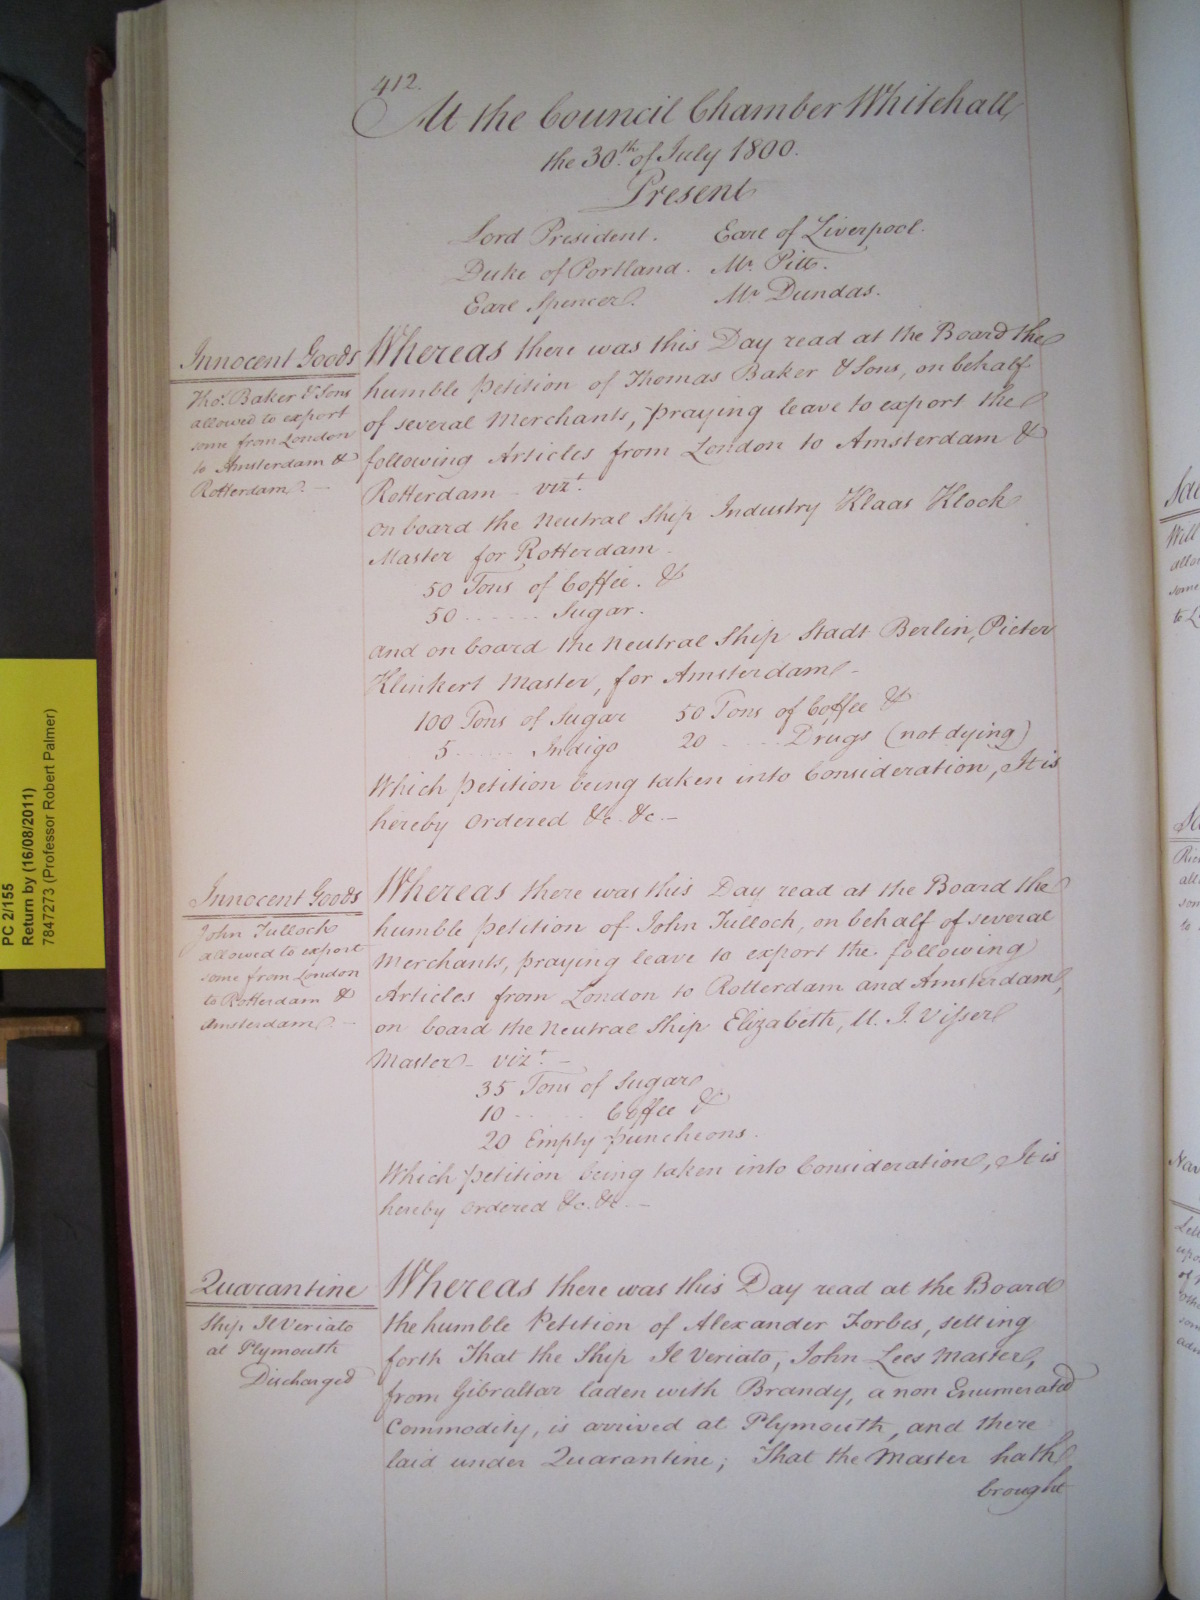 412.
At the Council Chamber Whitehall,
the 30th of July 1800.
Present
Lord President. Earl of Liverpool.
Duke of Portland. Mr. Pitt.
Earl Spencer. Mr Dundas.
Innocent Goods
Thos. Baker & Sons
allowed to export
some from London
to Amsterdam &
Rotterdam. —
Whereas there was this Day read at the Board the
humble petition of Thomas Baker & Sons, on behalf
of several Merchants, praying leave to export the
following Articles from London to Amsterdam &
Rotterdam - vizt.
on board the Neutral Ship Industry Klaas Klock
Master for Rotterdam.
50 Tons of Coffee. &
50 ...... Sugar.
and on board the Neutral Ship Stadt Berlin, Pieter
Klinkert Master, for Amsterdam -
100 Tons of Sugar 50 Tons of Coffee &
5 ...... Indigo 20 ..... Drugs (not dying)
Which petition being taken into Consideration, It is
hereby Ordered &c. &c. —
Innocent Goods
John Tulloch
allowed to export
some from London
to Rotterdam &
Amsterdam. —
Whereas there was this Day read at the Board the
humble petition of John Tulloch, on behalf of several
Merchants, praying leave to export the following
Articles from London to Rotterdam and Amsterdam,
on board the Neutral Ship Elizabeth, U. I. Visser
Master - vizt. —
35 Tons of Sugar
10 ...... Coffee &
20 Empty puncheons.
Which petition being taken into Consideration, It is
hereby Ordered &c. &c. —
Quarantine
Ship Il Veriato
at Plymouth
Discharged
Whereas there was this Day read at the Board
the humble Petition of Alexander Forbes, setting
forth That the Ship Il Veriato, John Lees Master,
from Gibraltar laden with Brandy, a non Enumerated
Commodity, is arrived at Plymouth, and there
laid under Quarantine; That the Master hath
brought
PC 2/155
Return by (16/08/2011)
7847273 (Professor Robert Palmer)
Will